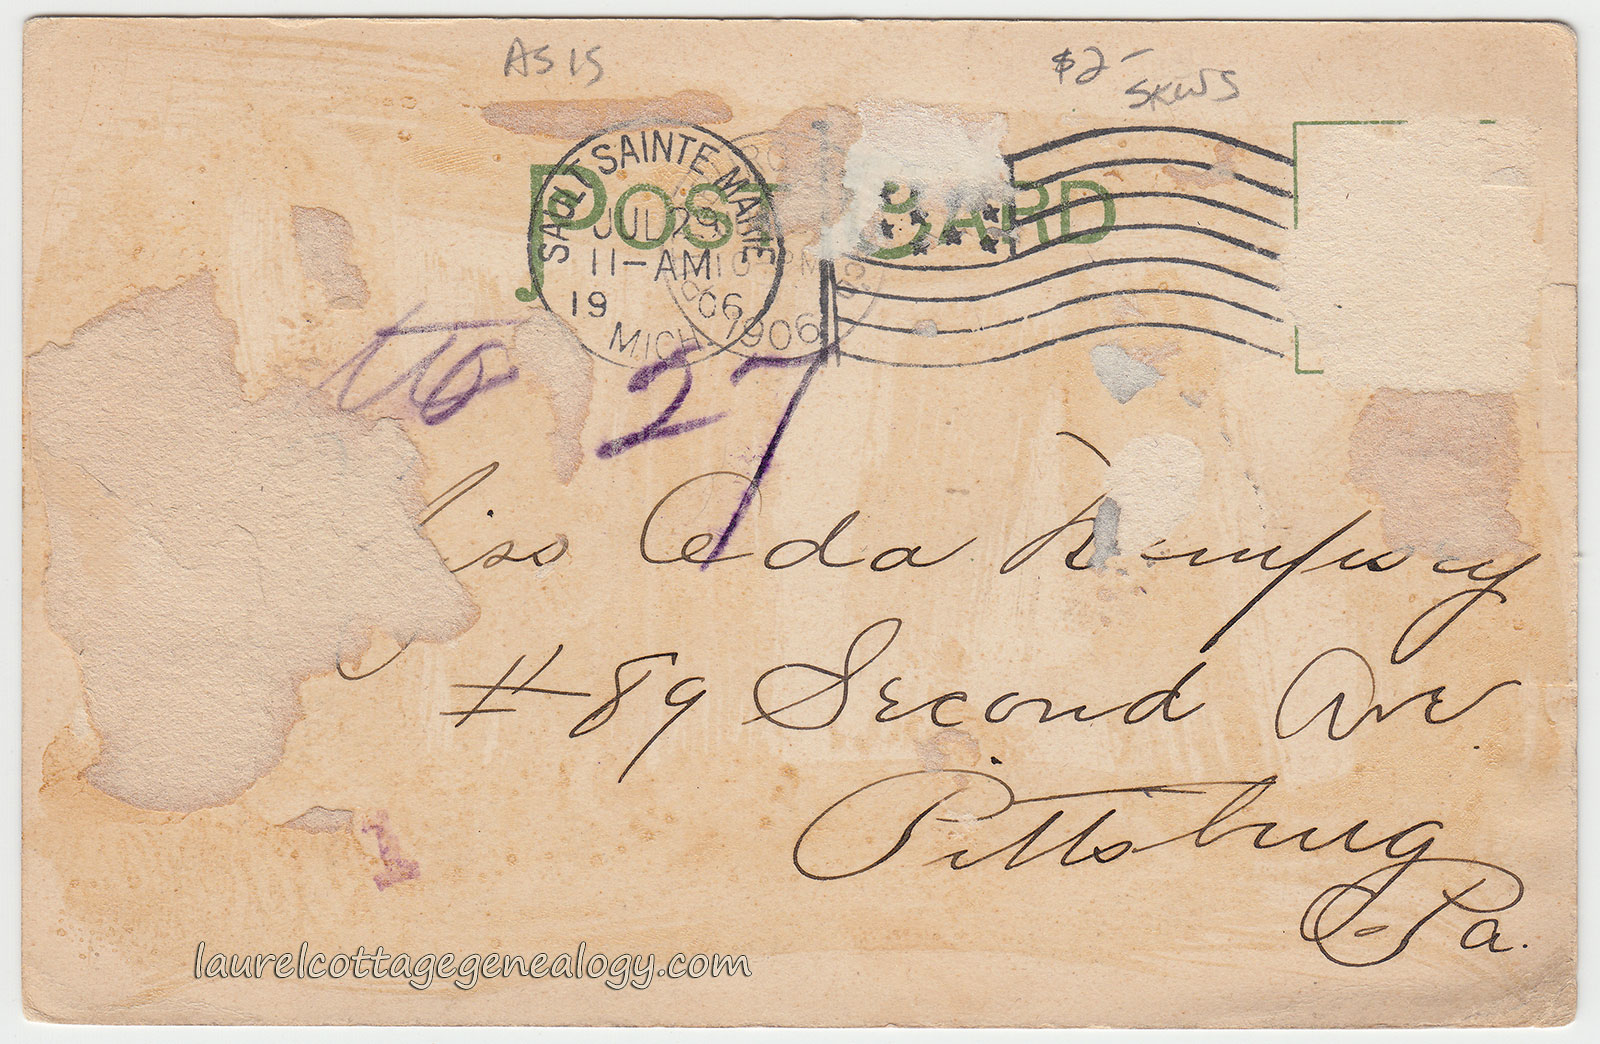 AS IS
$2-
SKWS
POST CARD
SAULT SAINTE MARIE
JUL 29
11-AM
1906
MICH.
10 PM
1906
27
iss Ada
#89 Second Ave.
Pittsburg
Pa.
laurelcottagegenealogy.com